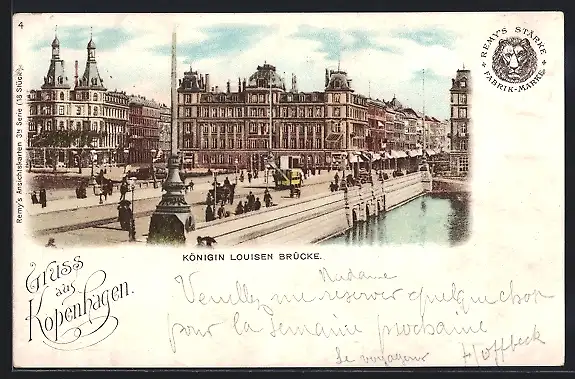 4
Remy's Ansichtskarten 3te Serie (18 Stück)
REMY'S STÄRKE
FABRIK-MARKE
KÖNIGIN LOUISEN BRÜCKE.
Gruss
aus
Kopenhagen.
Madame
Veuillez me reserver quelque chose
pour la semaine prochaine
Le voyageur Hoffbeck